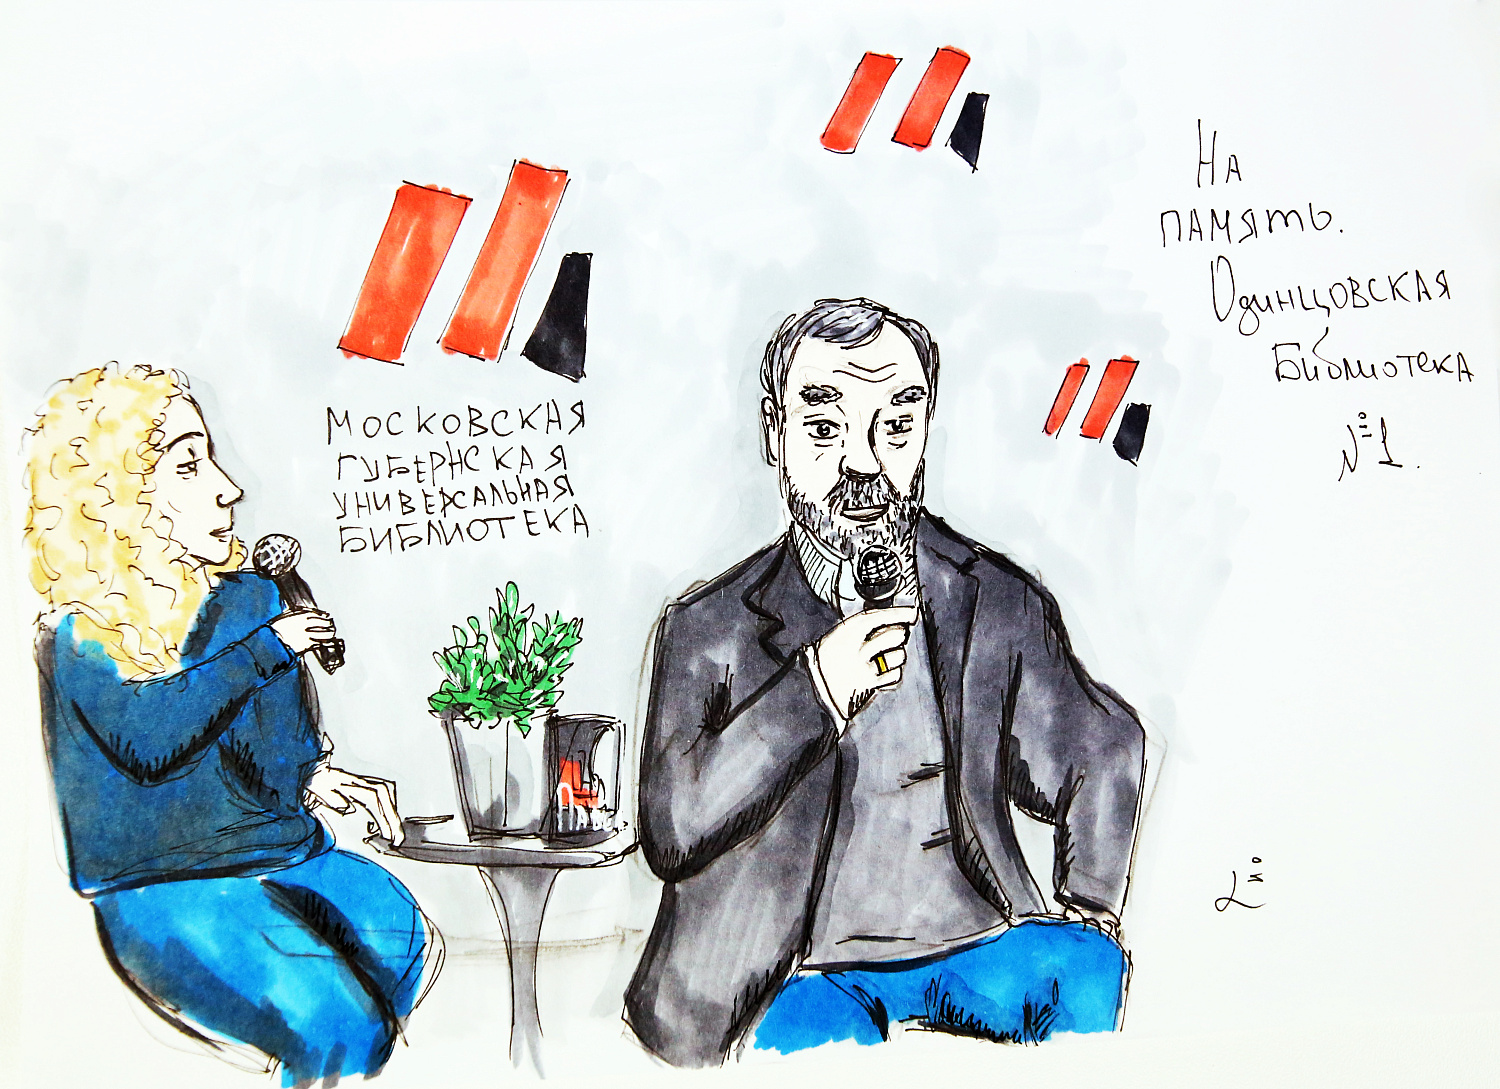 МОСКОВСКАЯ
ГУБЕРНСКАЯ
УНИВЕРСАЛЬНАЯ
БИБЛИОТЕКА
На
память.
Одинцовская
Библиотека
№1.